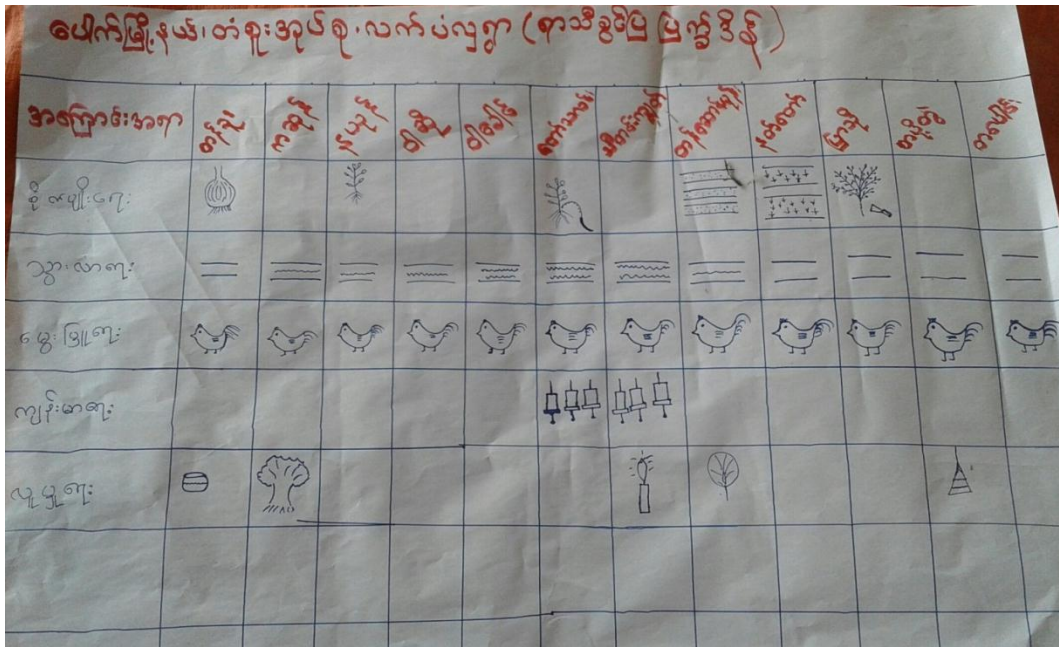 ပေါက်မြို့နယ်၊ တံစူးအုပ်စု၊ လက်ပံလှရွာ (ရာသီခွင်ပြ ပြက္ခဒိန်)
အကြောင်းအရာ တန်ခူး ကဆုန် နယုန် ဝါဆို ဝါခေါင် တော်သလင်း သီတင်းကျွတ် တန်ဆောင်မုန်း နတ်တော် ပြာသို တပို့တွဲ တပေါင်း
စိုက်ပျိုးရေး
သွားလာရေး
မွေးမြူရေး
ကျန်းမာရေး
လူမှုရေး